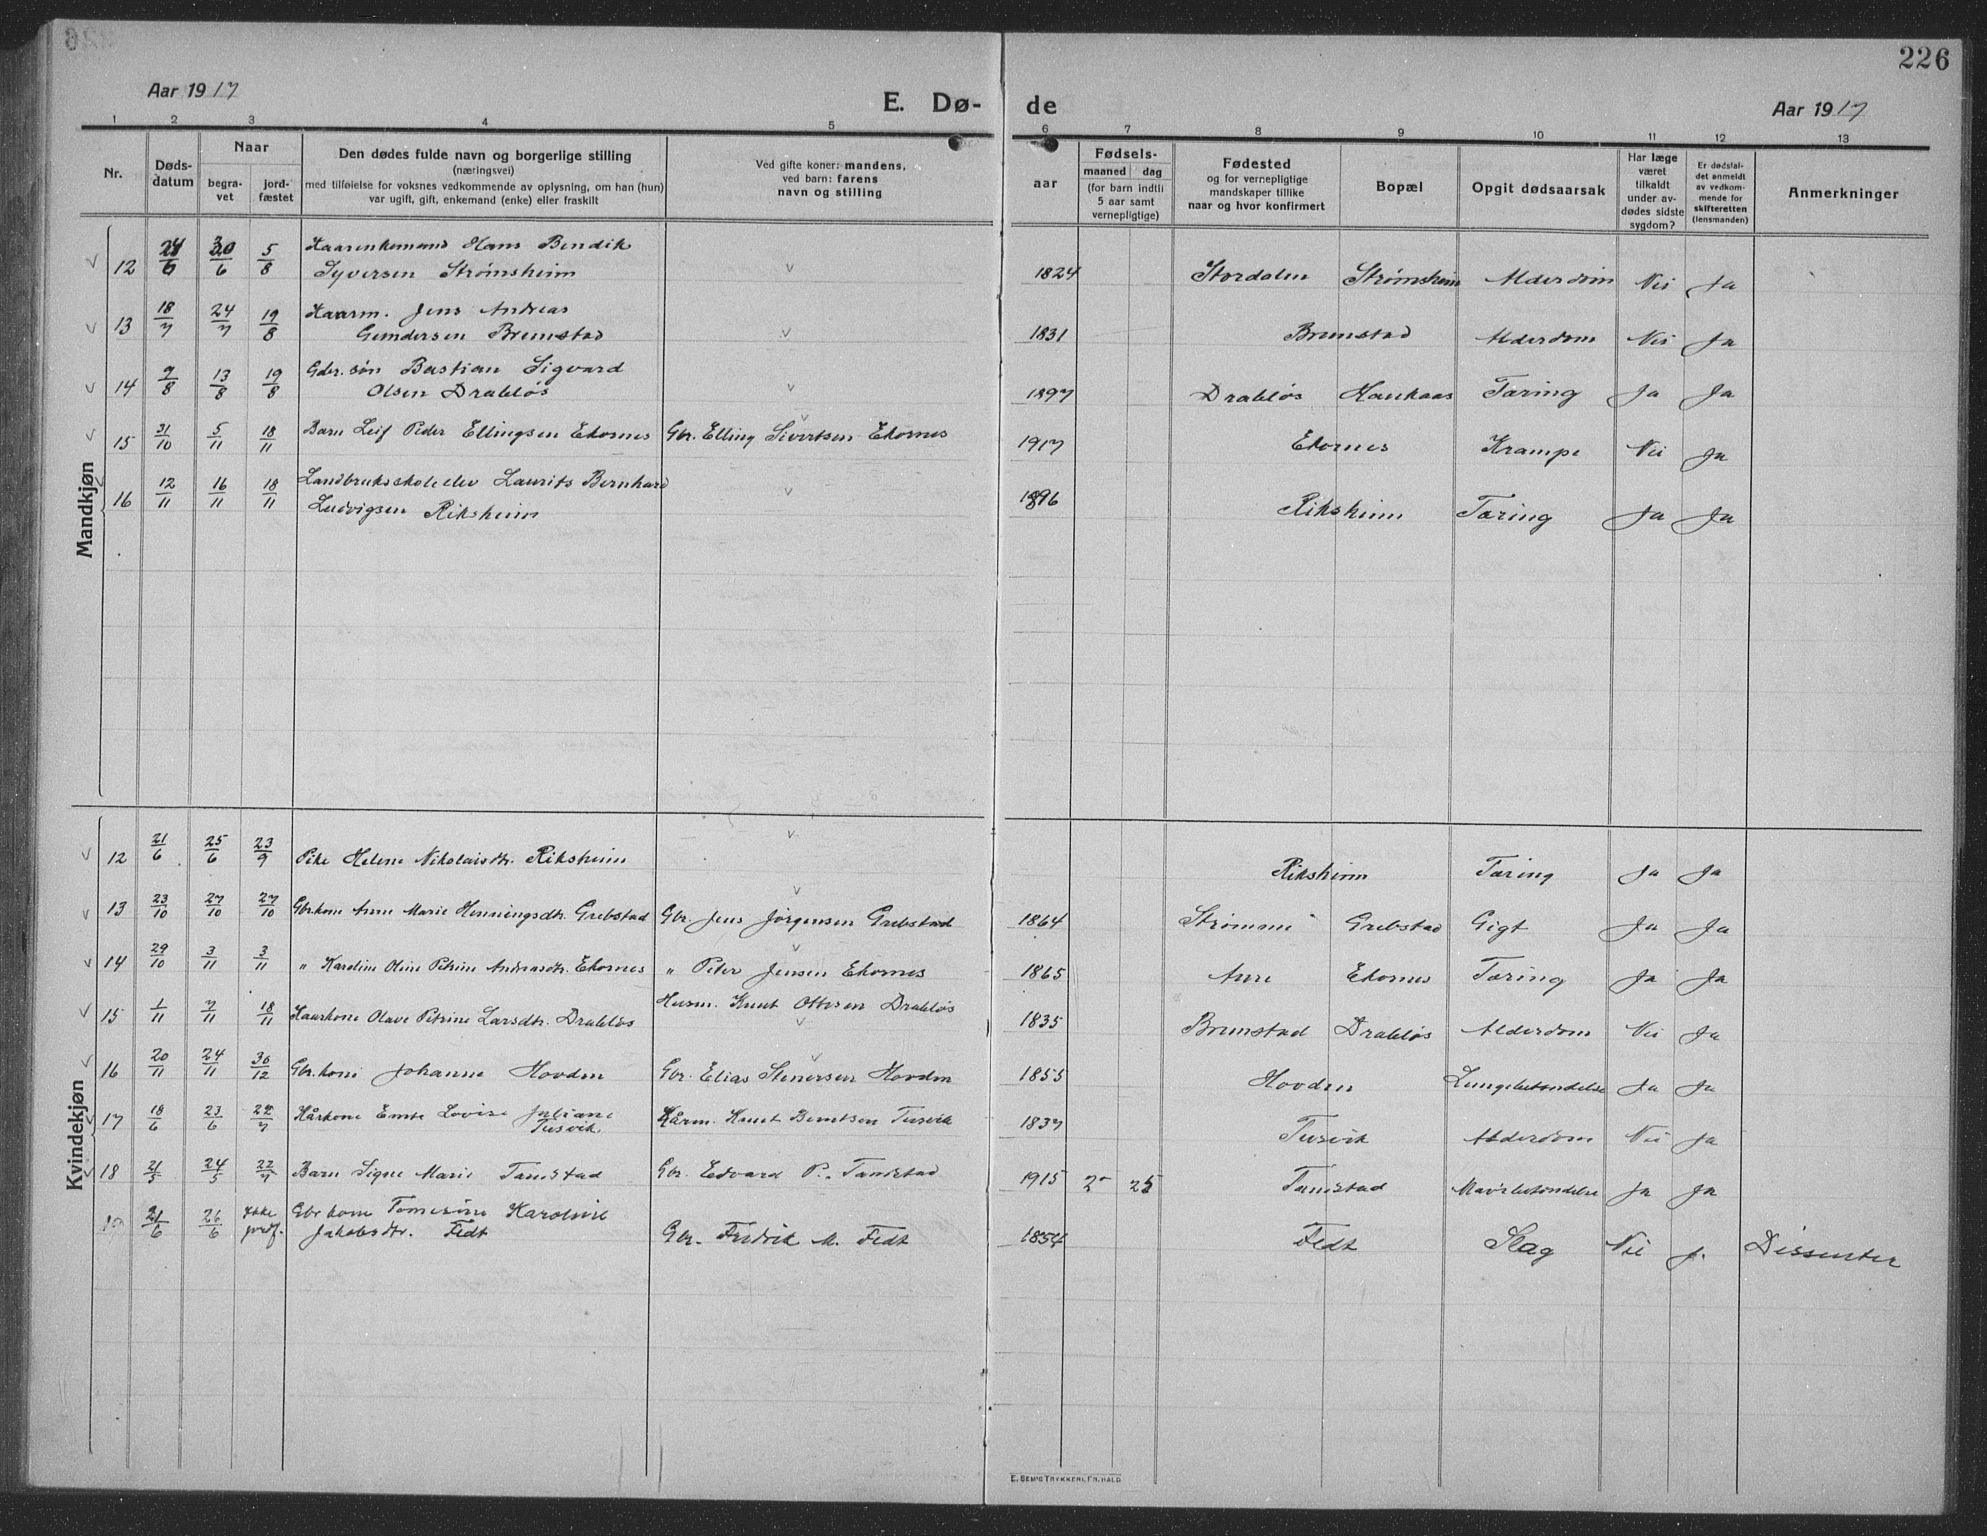 226
Aar 1917
E. Dø-
de
Aar 1917
1 2 3 4 5 6 7 8 9 10 11 12 13
Nr.
Døds-
datum
Naar
begra-
vet
jord-
fæstet
Den dødes fulde navn og borgerlige stilling
(næringsvei)
med tilføielse for voksnes vedkommende av oplysning, om han (hun)
var ugift, gift, enkemand (enke) eller fraskilt
Ved gifte koner: mandens,
ved barn: farens
navn og stilling
Fødsels-
aar
maaned dag
(for barn indtil
5 aar samt
vernepligtige)
Fødested
og for vernepligtige
mandskaper tillike
naar og hvor konfirmert
Bopæl
Opgit dødsaarsak
Har læge
været
tilkaldt
under av-
dødes sidste
sygdom?
Er dødsfal-
det anmeldt
av vedkom-
mende for
skifteretten
(lensmanden)
Anmerkninger
Mandkjøn
12 24/6 30/6 5/8 Kaarenkemand Hans Bendik
Syversen Strømsheim v 1824 Stordalen Strømsheim Alderdom Nei Ja
13 18/7 24/7 19/8 Kaarm. Jens Andreas
Gundersen Brunstad v 1831 Brunstad Alderdom Nei Ja
14 9/8 13/8 19/8 Gdbr. søn Bastian Sigvard
Olsen Drabløs v 1897 Drabløs Haukaas Tæring Ja Ja
15 31/10 5/11 18/11 Barn Leif Peder Ellingsen Ekornes Gbr. Elling Sivertsen Ekornes 1917 Ekornes Krampe Nei Ja
16 12/11 16/11 18/11 Landbruksskoleelev Laurits Bernhard
Ludvigsen Riksheim v 1896 Riksheim Tæring Ja Ja
Kvindekjøn
12 21/6 25/6 23/9 Pike Helene Nikolaisdtr. Riksheim v Riksheim Tæring Ja Ja
13 23/10 27/10 27/10 Gbr.kone Anne Marie Henningsdtr. Grebstad Gbr. Jens Jørgensen Grebstad 1864 Strømme Grebstad Gigt Ja Ja
14 29/10 3/11 3/11 " Karoline Oline Petrine Andreasdtr. Ekornes " Peter Jensen Ekornes 1865 Aure Ekornes Tæring Ja Ja
15 1/11 7/11 18/11 Kaarkone Olave Petrine Larsdtr. Drabløs Husm. Knut Ottesen Drabløs 1835 Brunstad Drabløs Alderdom Nei Ja
16 20/11 24/11 30/12 Gbr.kone Johanne Hovden Gbr. Elias Stenersen Hovden 1855 Hovden Lungebetændelse Ja Ja
17 18/6 23/6 22/7 Kårkone Emte Lovise Juliane
Tusvik Kårm. Knut Berntsen Tusvik 1837 Tusvik Alderdom Nei Ja
18 21/5 24/5 22/7 Barn Signe Marie Tandstad Gbr. Edvard P. Tandstad 1915 2 25 Tandstad Mavebetændelse Ja Ja
19 21/6 26/6 ikke jordf. Gbr kone Tomesine Karoline
Jakobsdtr. Fedt Gbr. Fredrik M. Fedt 1854 Fedt Slag Nei J. Dissenter
E. SEM'S TRYKKERI, FR.HALD